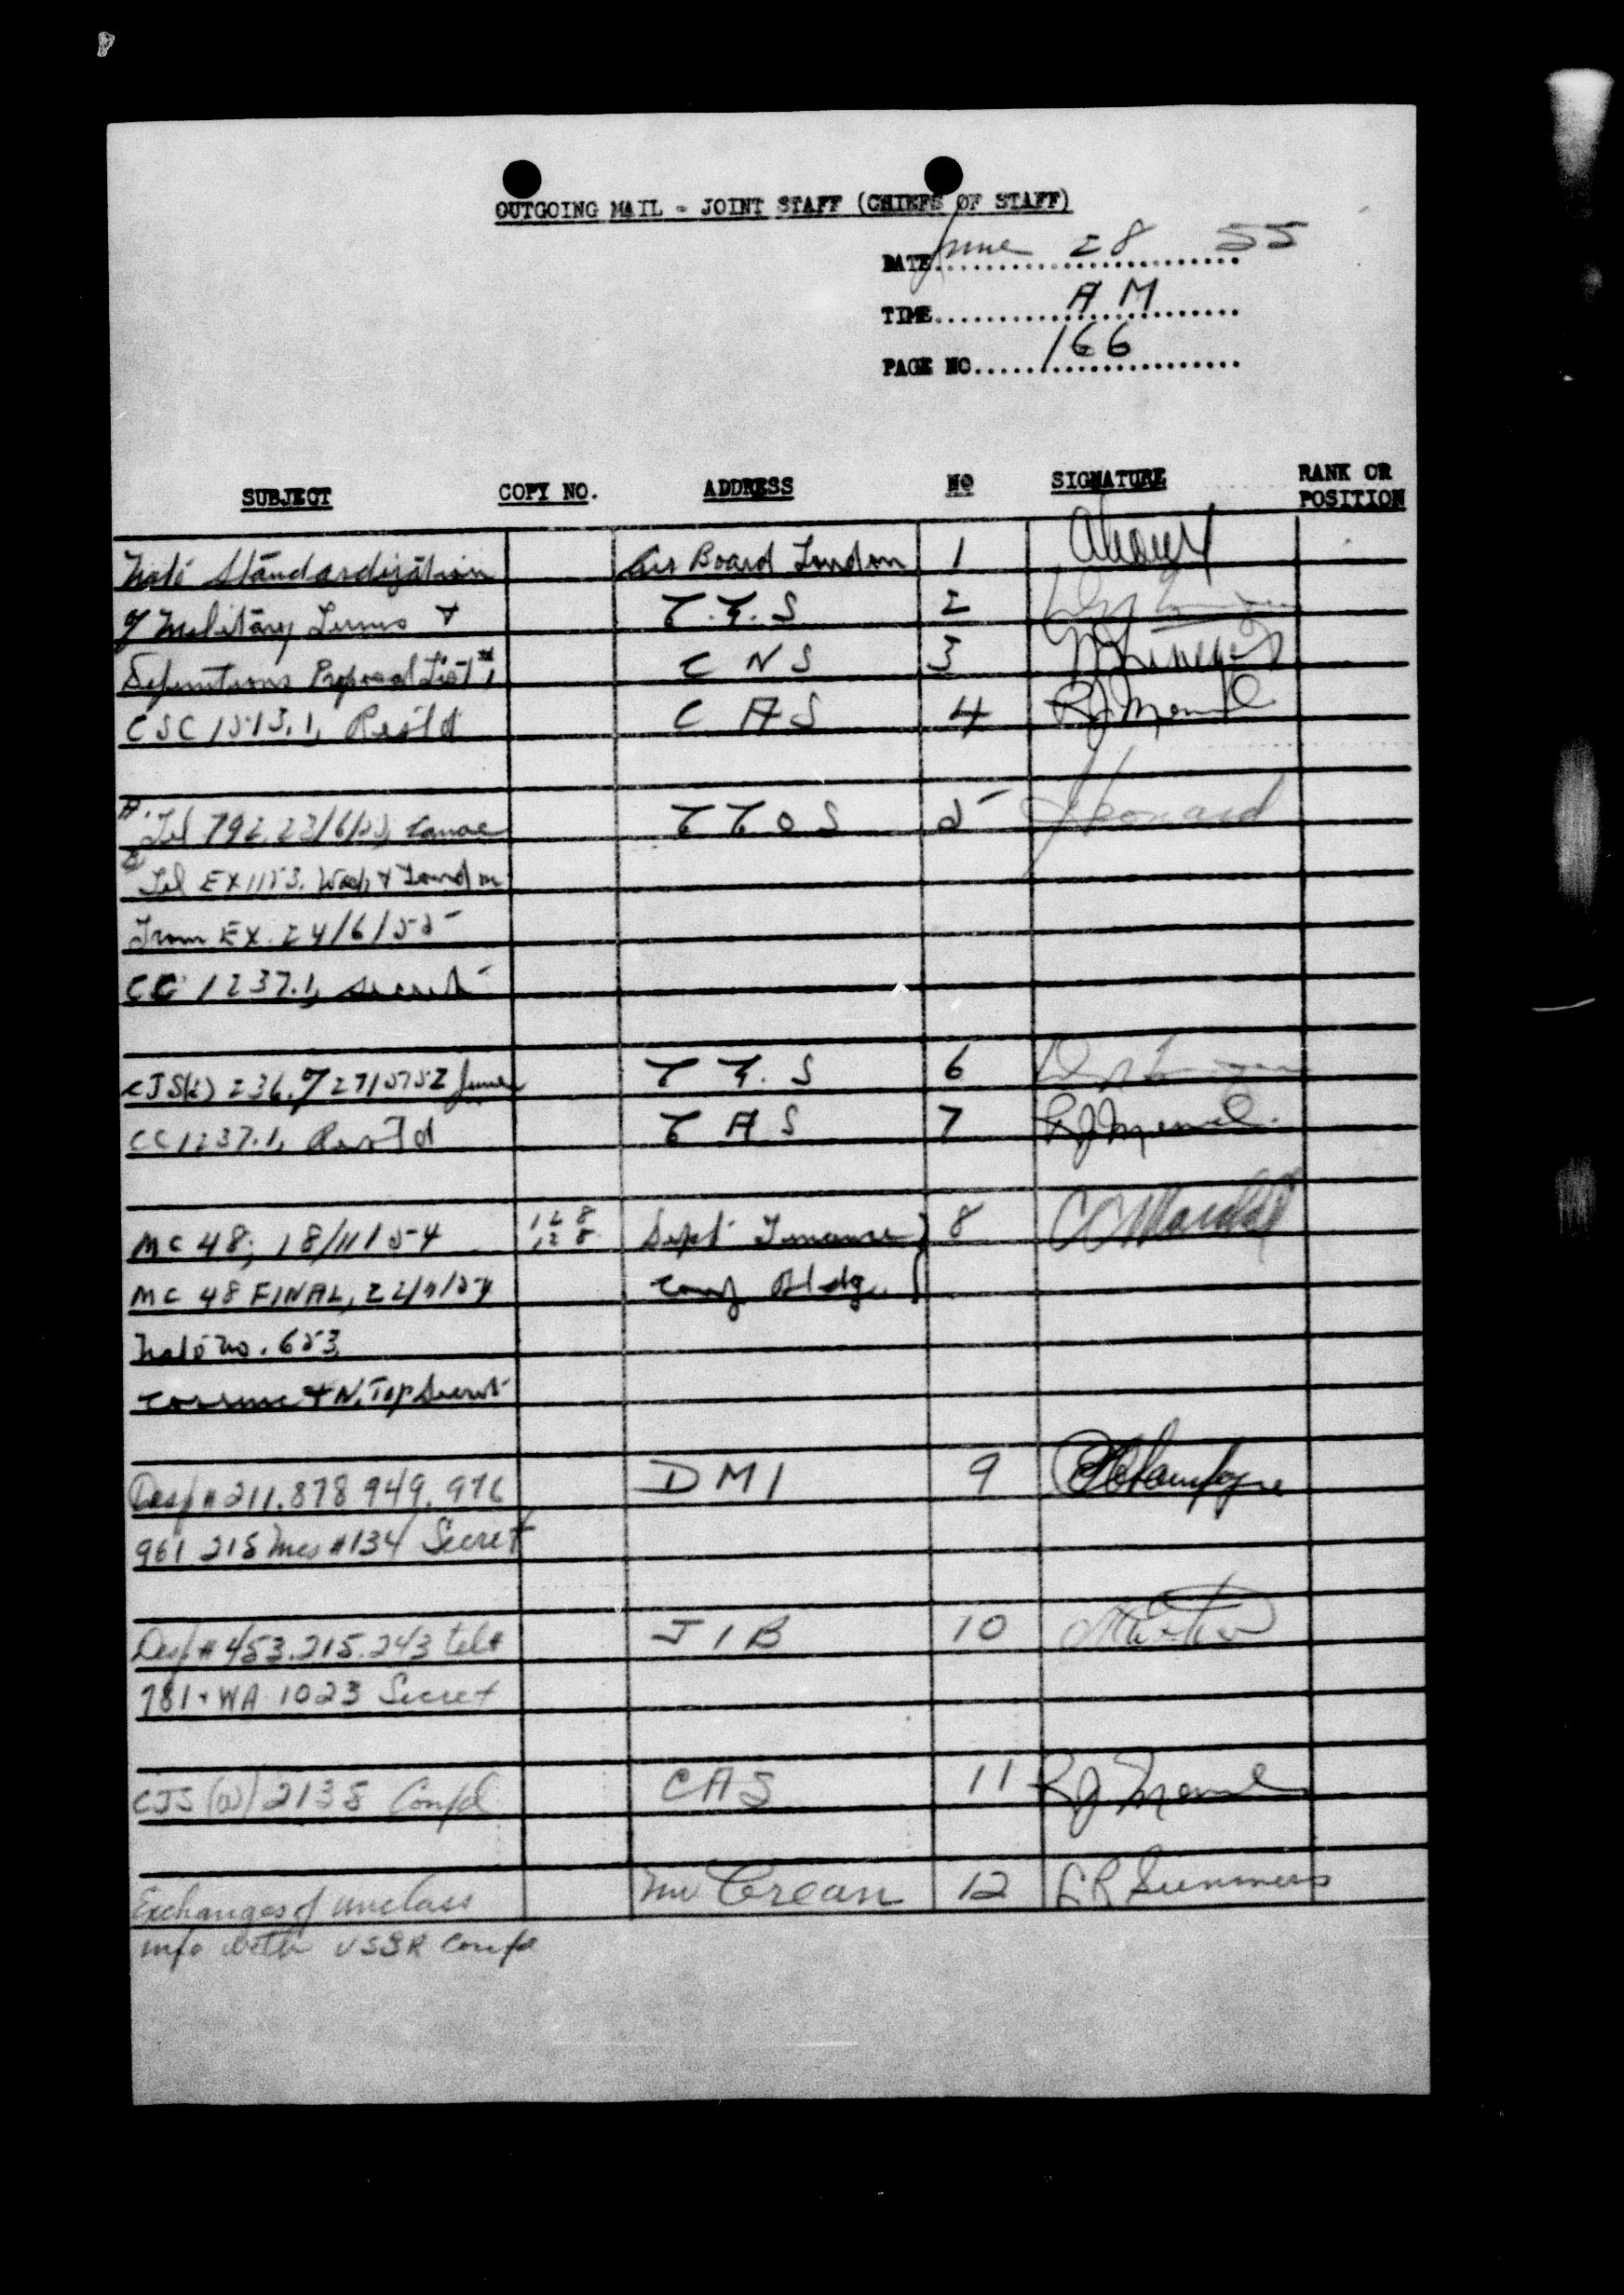 OUTGOING MAIL - JOINT STAFF (CHIEFS OF STAFF)
DATE June 28 55
TIME AM
PAGE NO 166
SUBJECT COPY NO. ADDRESS NO SIGNATURE RANK OR POSITION
Nato Standardization Air Board London 1
of Military Terms + 2
Definitions Proposed List C N S 3
CSC 1513.1, Rest'd C A S 4
A. Tel 792, 23/6/55, 5 Leonard
Tel EX 1153, Wash + London
From EX. 24/6/55
CC 1237.1, secret
CJS(L) 236, of 271575Z June 6
CC 1237.1, Rest'd C A S 7
MC 48, 18/11/54 128 Dept Finance 8
128
MC 48 FINAL, 22/11/54 Bldg.
Nato No. 653
Top Secret
Desp # 211. 878 949. 976 DMI 9
961 215 Mes # 134 Secret
Desp # 453. 215. 243 tel# JIB 10
781 + WA 1023 Secret
CJS (W) 2138 Confd CAS 11
Exchanges of unclass Mr Crean 12 Summers
info with USSR Confd